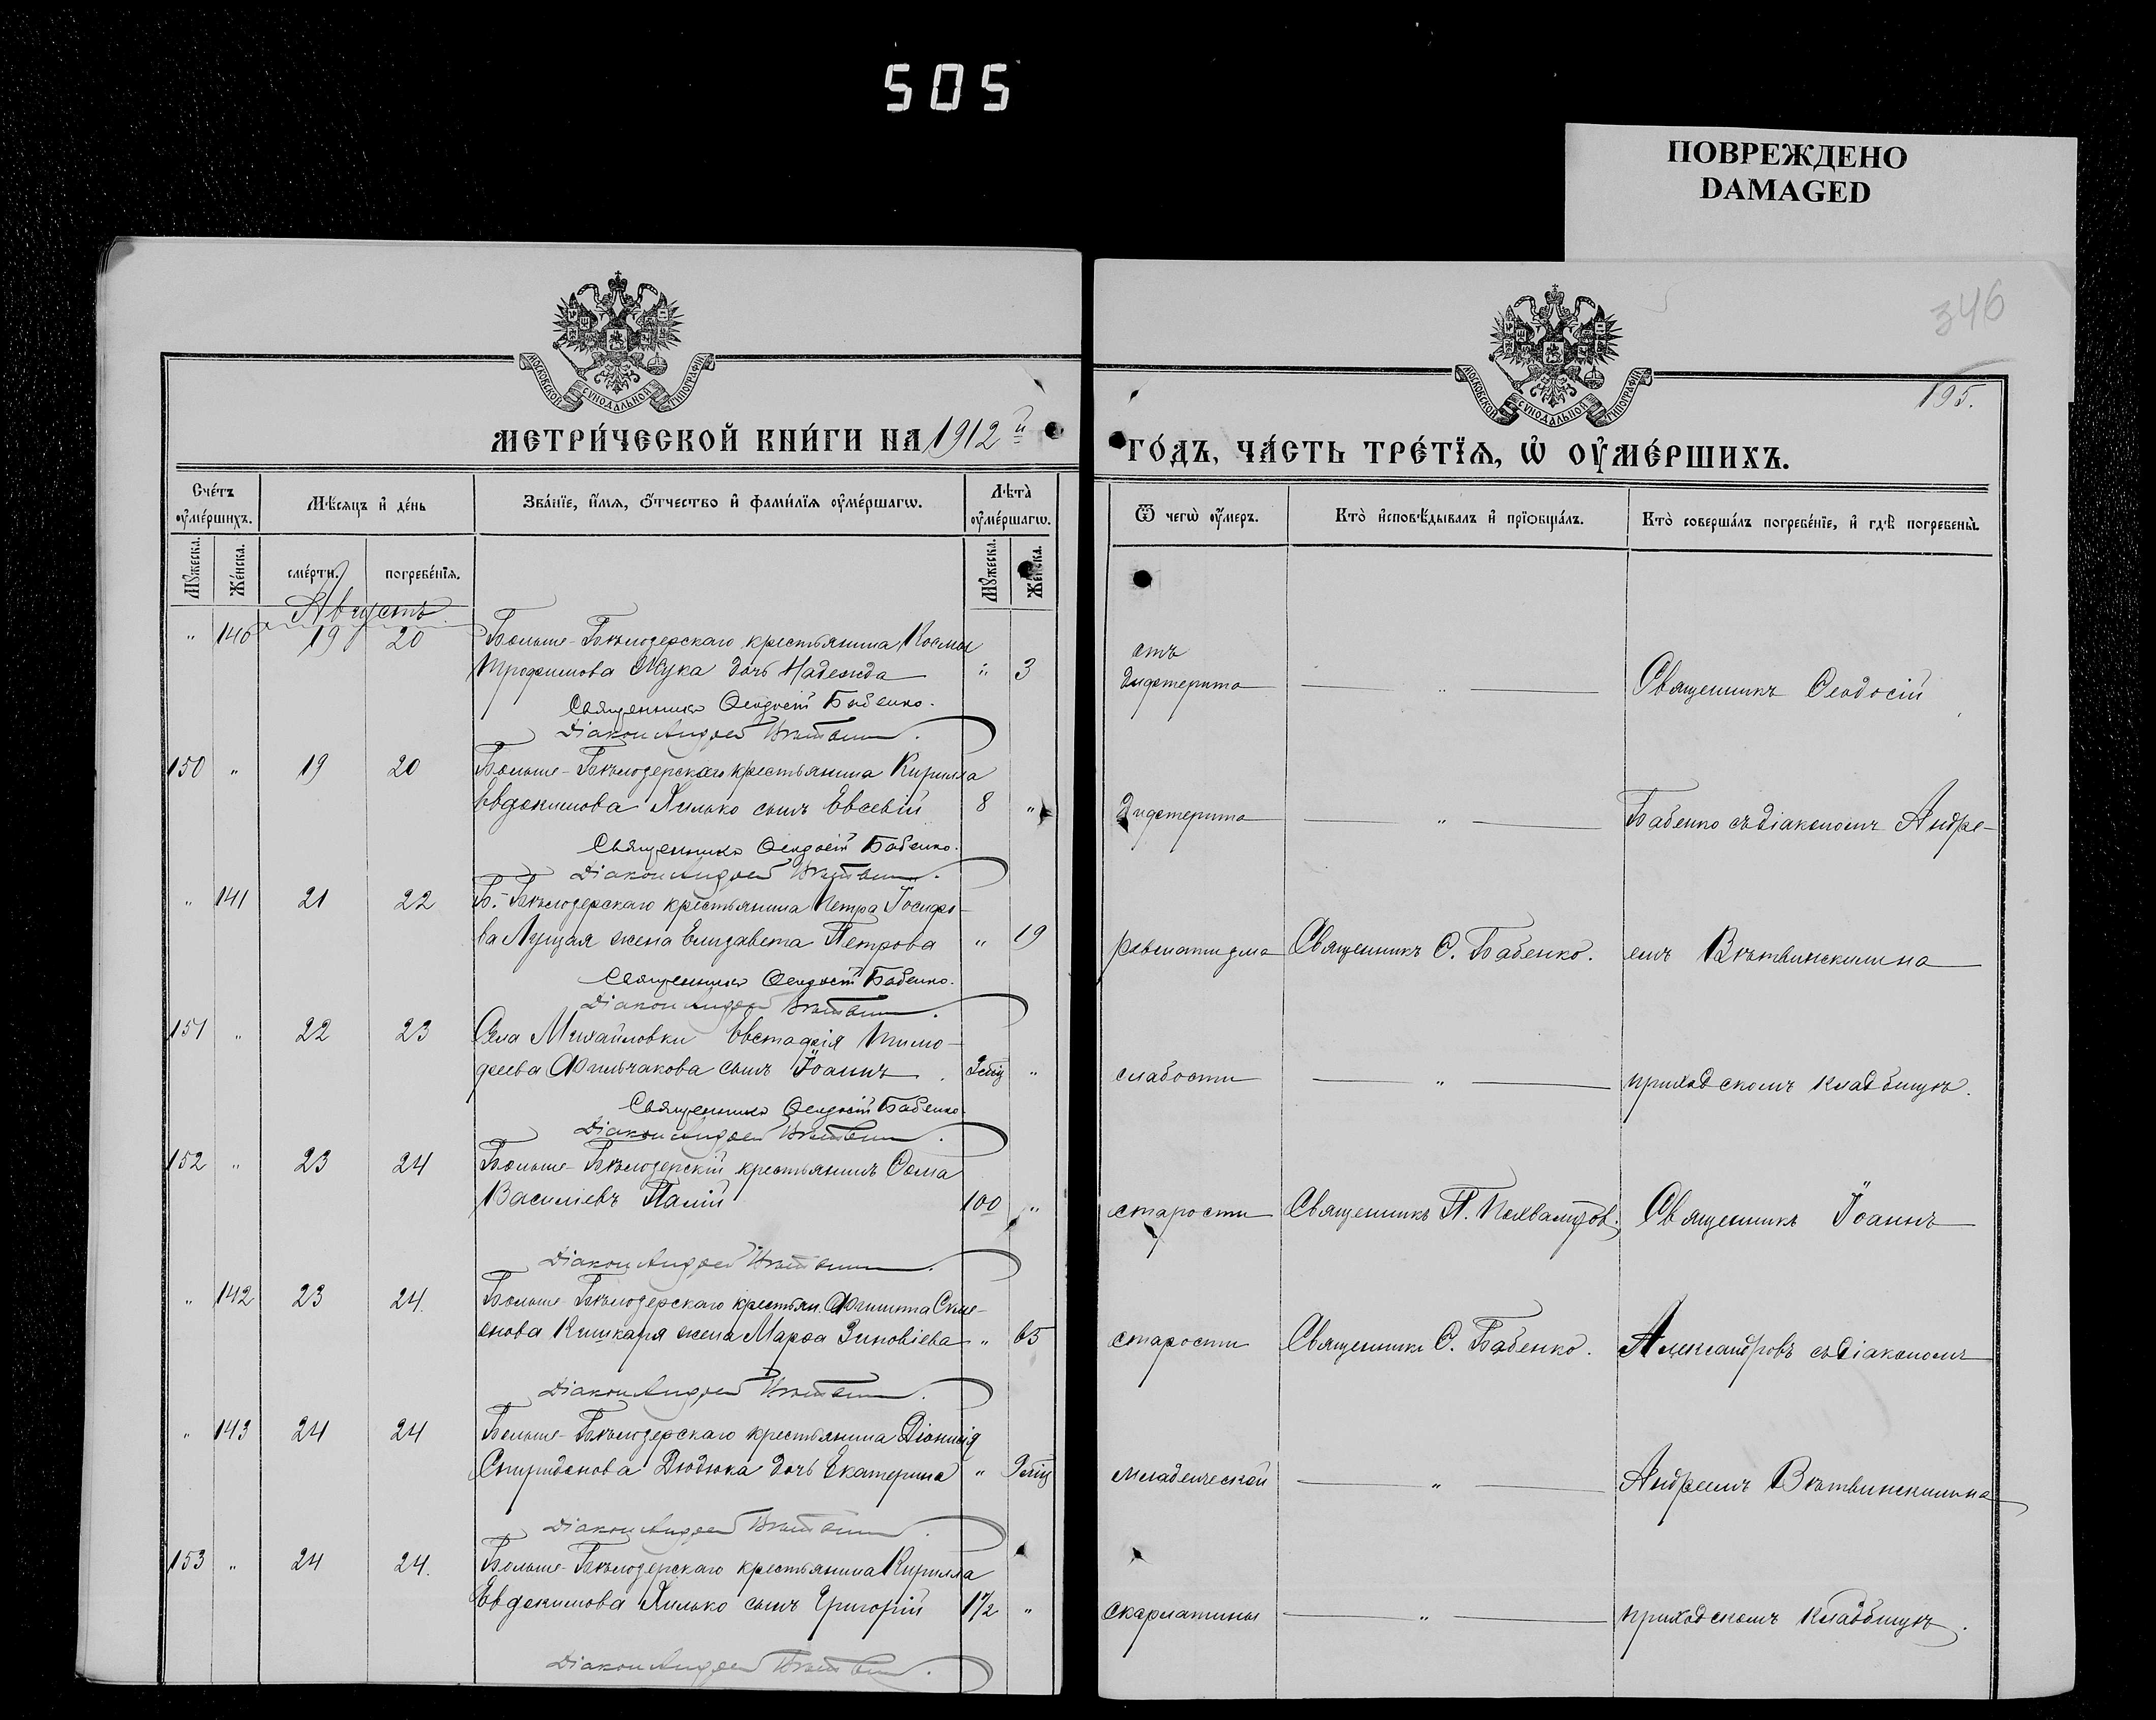 505
ПОВРЕЖДЕНО
DAMAGED
346
195.
МОСКОВСКОЙ СѴНОДАЛЬНОЙ ТИПОГРАФІИ
МОСКОВСКОЙ СѴНОДАЛЬНОЙ ТИПОГРАФІИ
МЕТРИ́ЧЕСКОЙ КНИ́ГИ НА 1912й
ГО́ДЪ, ЧА́СТЬ ТРЕ́ТЇѦ, Ѡ҆ ОУ҆МЕ́РШИХЪ.
Сче́тъ оу҆ме́ршихъ.
Мѣ́сяцъ и҆ де́нь
Зва́нїе, и҆́мѧ, ѻ҆́тчество и҆ фами́лїѧ оу҆ме́ршагѡ.
Лѣта̀ оу҆ме́ршагѡ.
Ѿ чегѡ̀ оу҆́меръ.
Кто̀ и҆сповѣ́дывалъ и҆ прїѡбща́лъ.
Кто̀ соверша́лъ погребе́нїе, и҆ гдѣ̀ погребены̀.
Мꙋ́жеска.
Же́нска.
сме́рти.
погребе́нїѧ.
Мꙋ́жеска.
Же́нска.
Августъ
" 140 19 20 Больше-Бѣлозерскаго крестьянина Космы
Трофимова Жука дочь Надежда " 3 отъ дифтерита " Священникъ Ѳеодосій
Священникъ Ѳеодосій Бабенко.
Діаконъ Андрей
150 " 19 20 Больше-Бѣлозерскаго крестьянина Кирилла
Евдокимова Хилько сынъ Евсевій 8 " Дифтерита " Бабенко съ діакономъ Андре-
Священникъ Ѳеодосій Бабенко.
Діаконъ Андрей
" 141 21 22 Б.-Бѣлозерскаго крестьянина Петра Іосифо-
ва Луцая жена Елизавета Петрова " 19 ревматизма Священникъ Ѳ. Бабенко. емъ Вѣтвинскимъ на
Священникъ Ѳеодосій Бабенко.
Діаконъ Андрей
151 " 22 23 Села Михайловки Евстафія Тимо-
феева Фильчакова сынъ Іоаннъ " слабости " приходскомъ кладбищѣ.
Священникъ Ѳеодосій Бабенко.
Діаконъ Андрей
152 " 23 24 Больше-Бѣлозерскій крестьянинъ Ѳома
Василіевъ Палій 100 " старости Священникъ П. Священникъ Іоаннъ
Діаконъ Андрей
" 142 23 24. Больше-Бѣлозерскаго крестьян. Филиппа Симе-
онова Кишкаря жена Марѳа Зиновіева " 65 старости Священникъ Ѳ. Бабенко. Александровъ съ діакономъ
Діаконъ Андрей
" 143 24 24 Больше-Бѣлозерскаго крестьянина Діонисія
Спиридонова Дюдюка дочь Екатерина " младенческой " Андреемъ Вѣтвинскимъ на
Діаконъ Андрей
153 " 24 24. Больше-Бѣлозерскаго крестьянина Кирилла
Евдокимова Хилько сынъ Григорій 1½ " скарлатины " приходскомъ кладбищѣ.
Діаконъ Андрей